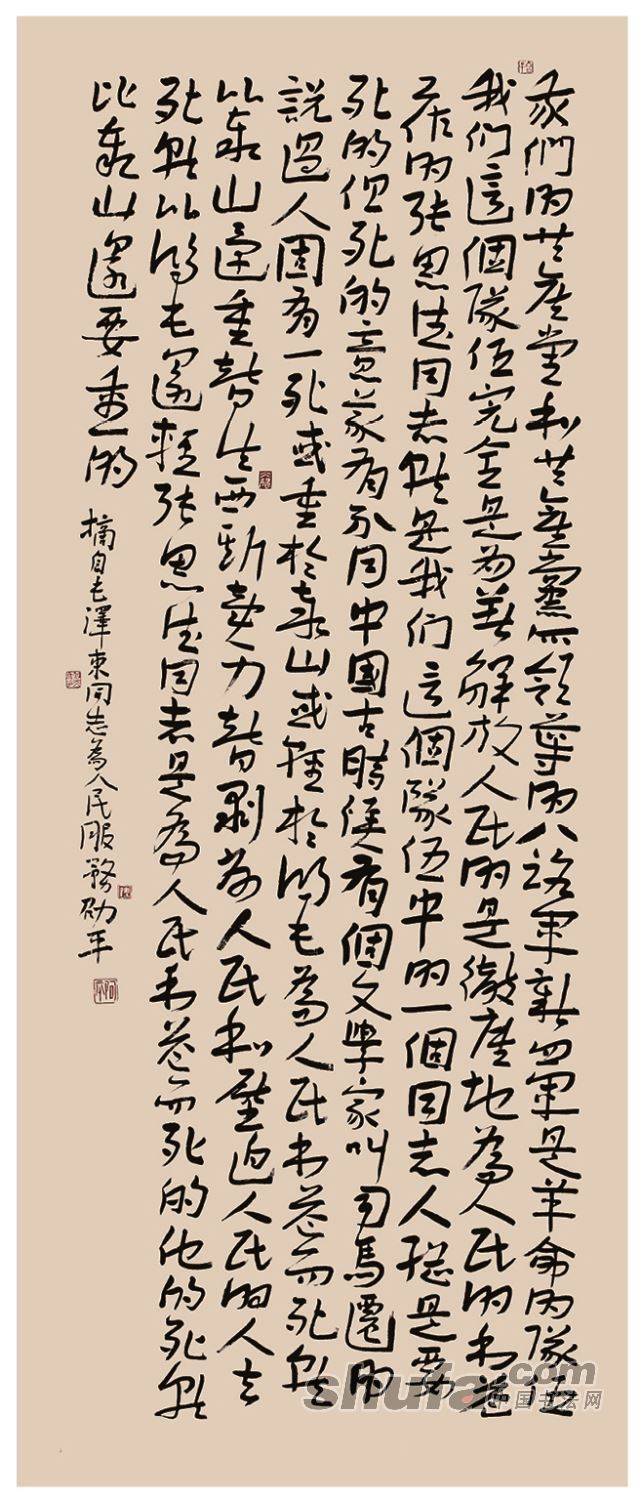 我們的共產党和共產黨所領導的八路軍新四軍是革命的隊伍
我们這個隊伍完全是为着解放人民的是徹底地為人民的利益
工作的張思德同志就是我们這個隊伍中的一個同志人總是要
死的但死的意義有不同中國古時候有個文學家叫司馬遷的
說過人固有一死或重於泰山或輕於鴻毛為人民利益而死就
比泰山還重替法西斯賣力替剥削人民和壓迫人民的人去
死就比鴻毛還輕張思德同志是為人民利益而死的他的死就
比泰山還要重的
摘自毛澤東同志為人民服務劭平
shufa.com
中国书法网